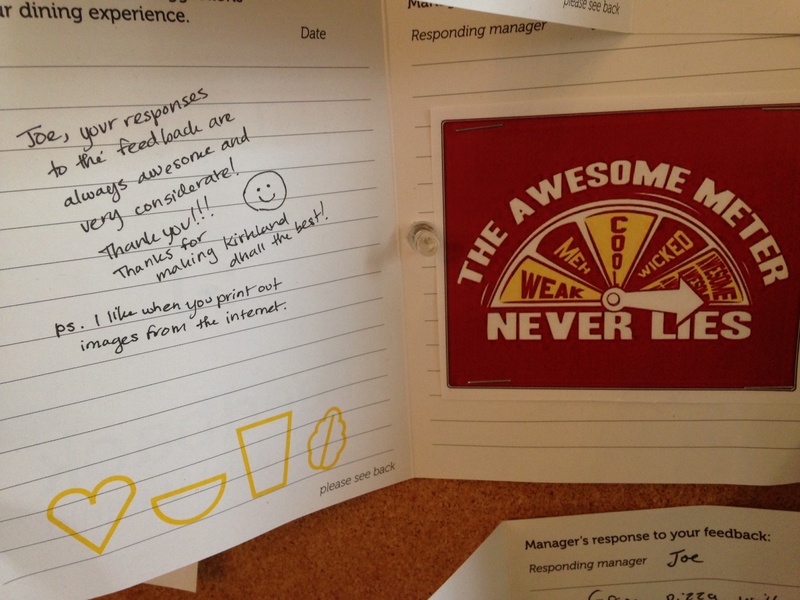 ur dining experience.
Date
Joe, your responses
to the feedback are
always awesome and
very considerate!
Thank you!!!
Thanks for
making Kirkland
dhall the best!
ps. I like when you print out
images from the internet.
please see back
please see back
Responding manager
THE AWESOME METER
WEAK
MEH
COOL
WICKED
AWESOME
NEVER LIES
Manager's response to your feedback:
Responding manager Joe